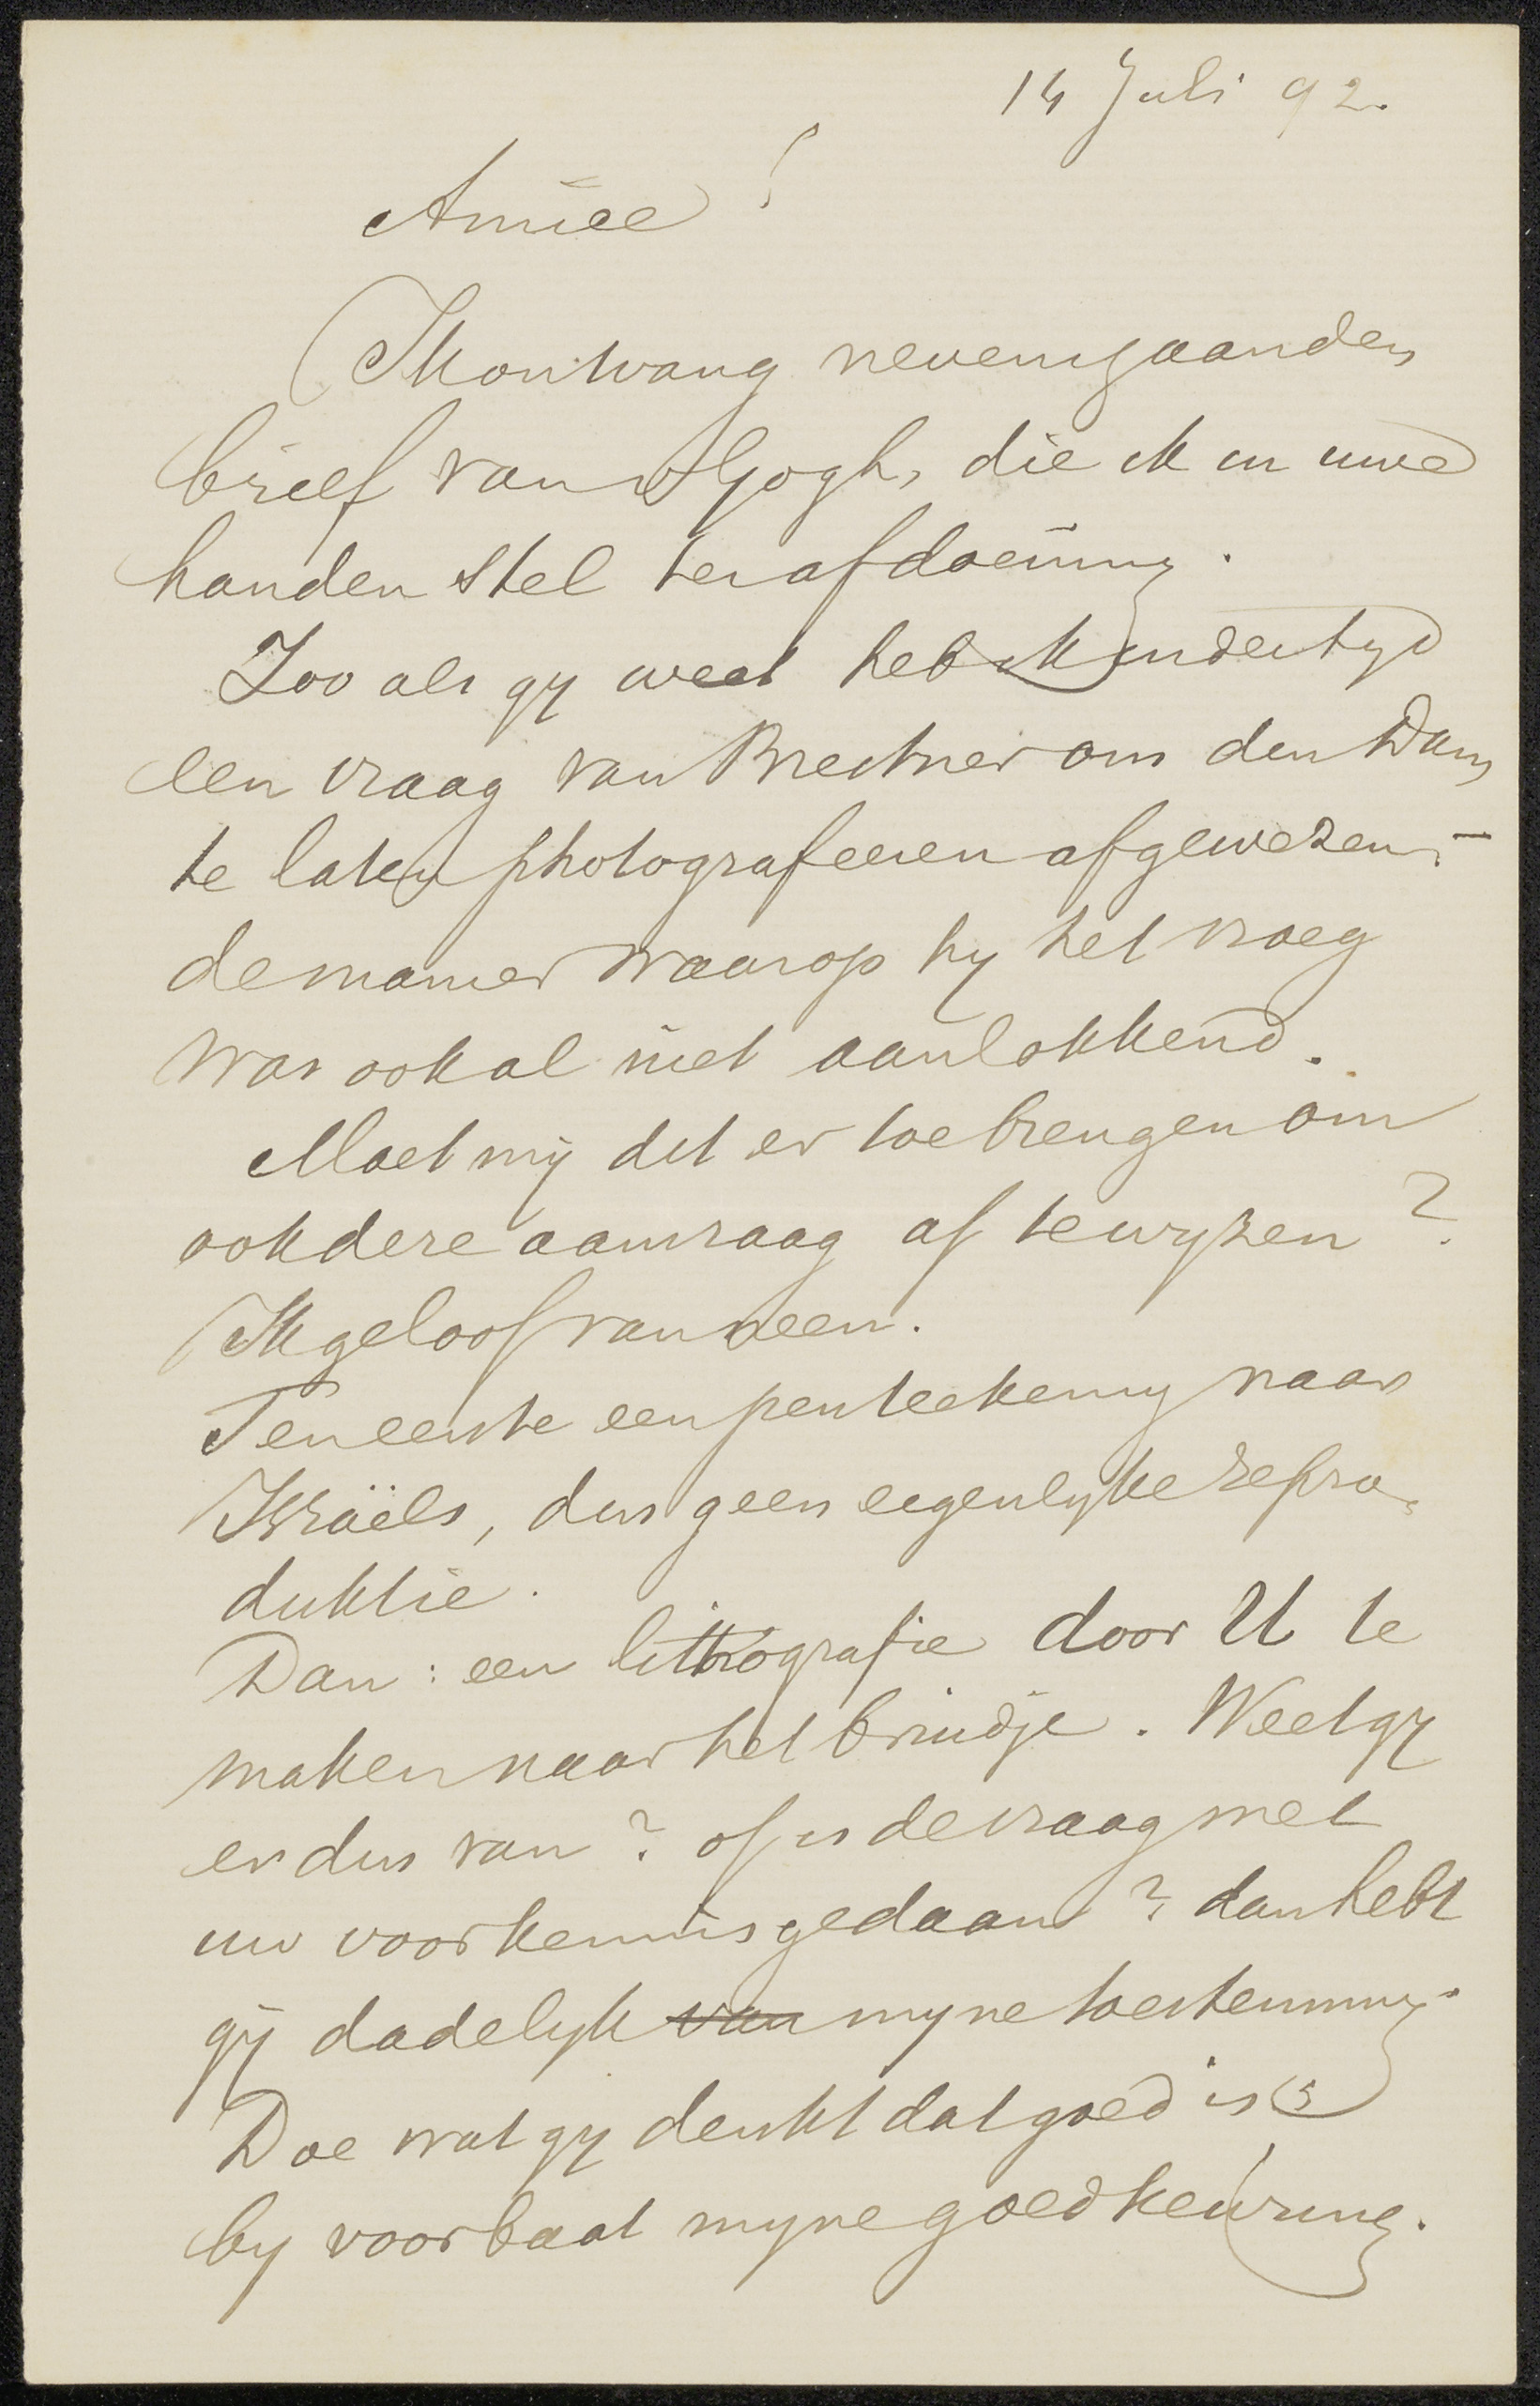 14 Juli 92.
Amice!
Ik ontvang nevensgaanden
brief van v Gogh, die ik in uwe
handen stel ter afdoening.
Zoo als gij weet heb ik indertijd
een vraag van Breitner om den Dam
te laten photografeeren afgewezen; –
de manier waarop hij het vroeg
was ook al niet aanlokkend.
Moet mij dit er toe brengen om
ook deze aanvraag af te wijzen?
Ik geloof van neen.
Ten eerste een penteekening naar
Israëls, dus geen eigenlijke repro-
duktie.
Dan: een lithografie door U te
maken naar het bruidje. Weet gij
er dus van? of is de vraag met
uw voorkennis gedaan? dan hebt
gij dadelijk van mijne toestemming.
Doe wat gij denkt dat goed is
bij voorbaat mijne goedkeuring.